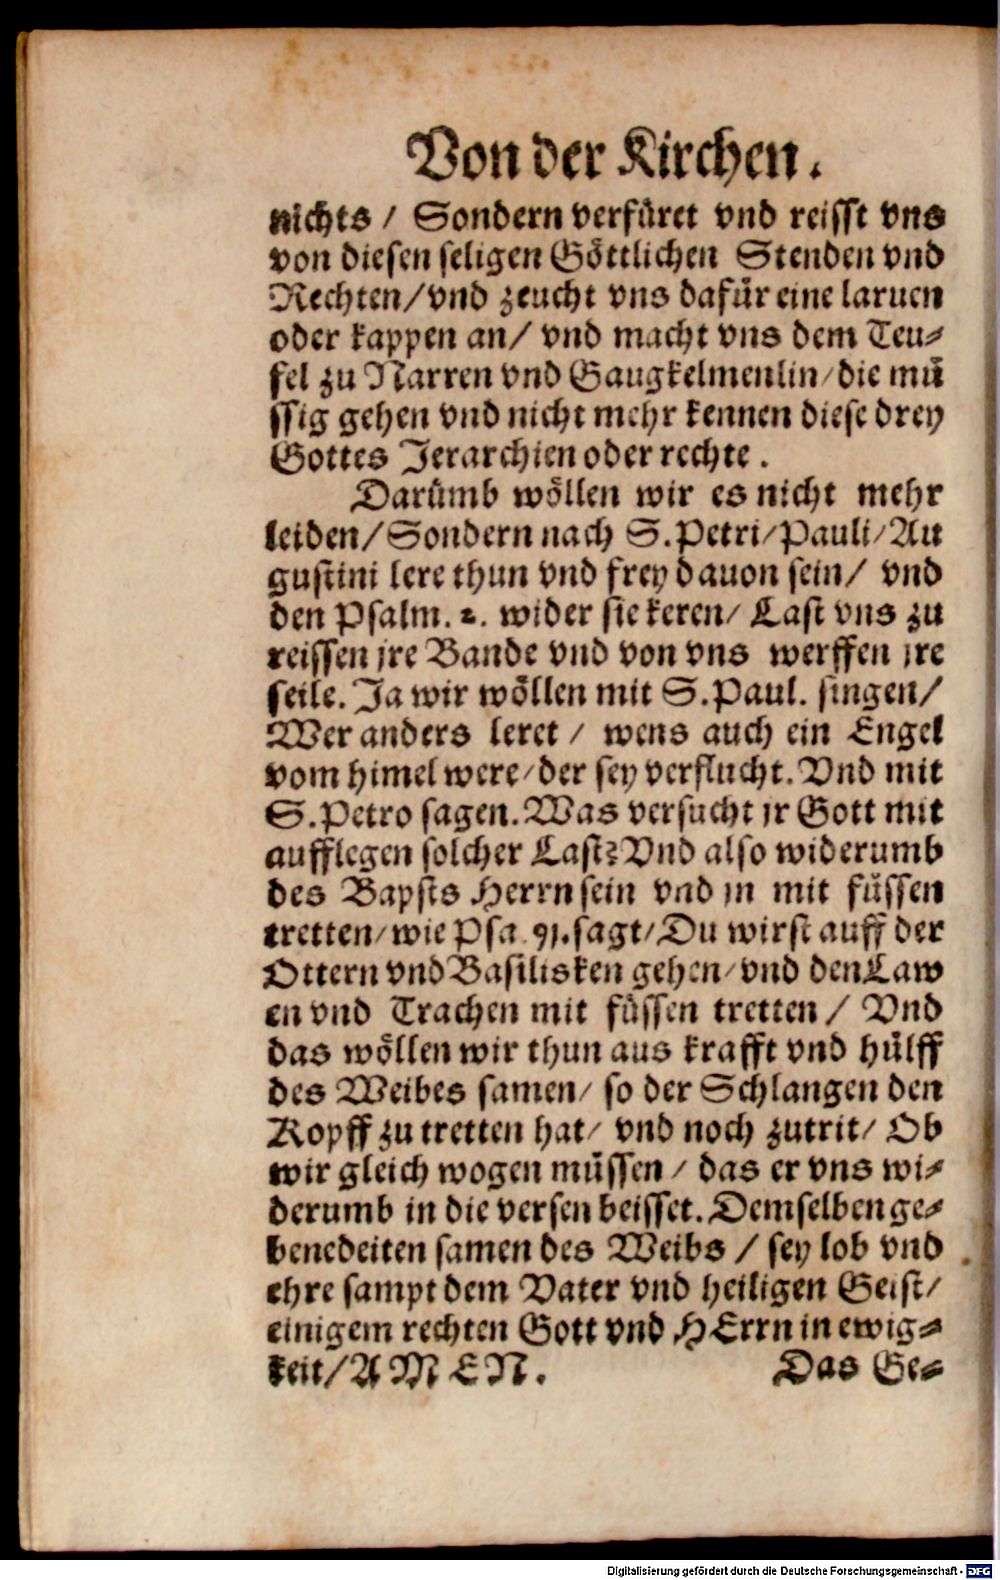 Von der Kirchen.
nichts / Sondern verfüret vnd reisst vns
von diesen seligen Göttlichen Stenden vnd
Rechten/ vnd zeucht vns dafür eine laruen
oder kappen an/ vnd macht vns dem Teu⸗
fel zu Narren vnd Gaugkelmenlin/ die mü
ssig gehen vnd nicht mehr kennen diese drey
Gottes Jerarchien oder rechte.
Darümb wöllen wir es nicht mehr
leiden/ Sondern nach S. Petri/ Pauli/ Au
gustini lere thun vnd frey dauon sein/ vnd
den Psalm. 2. wider sie keren/ Last vns zu
reissen jre Bande vnd von vns werffen jre
seile. Ja wir wöllen mit S. Paul. singen/
Wer anders leret / wens auch ein Engel
vom himel were/ der sey verflucht. Vnd mit
S. Petro sagen. Was versucht jr Gott mit
aufflegen solcher Last? Vnd also widerumb
des Bapsts Herrn sein vnd jn mit füssen
tretten/ wie Psa. 91. sagt/ Du wirst auff der
Ottern vnd Basilisken gehen/ vnd den Law
en vnd Trachen mit füssen tretten / Vnd
das wöllen wir thun aus krafft vnd hülff
des Weibes samen/ so der Schlangen den
Kopff zu tretten hat/ vnd noch zutrit/ Ob
wir gleich wogen müssen / das er vns wi⸗
derumb in die versen beisset. Demselben ge⸗
benedeiten samen des Weibs / sey lob vnd
ehre sampt dem Vater vnd heiligen Geist/
einigem rechten Gott vnd HErrn in ewig⸗
keit/ A M E N. Das Ge⸗
Digitalisierung gefördert durch die Deutsche Forschungsgemeinschaft - DFG